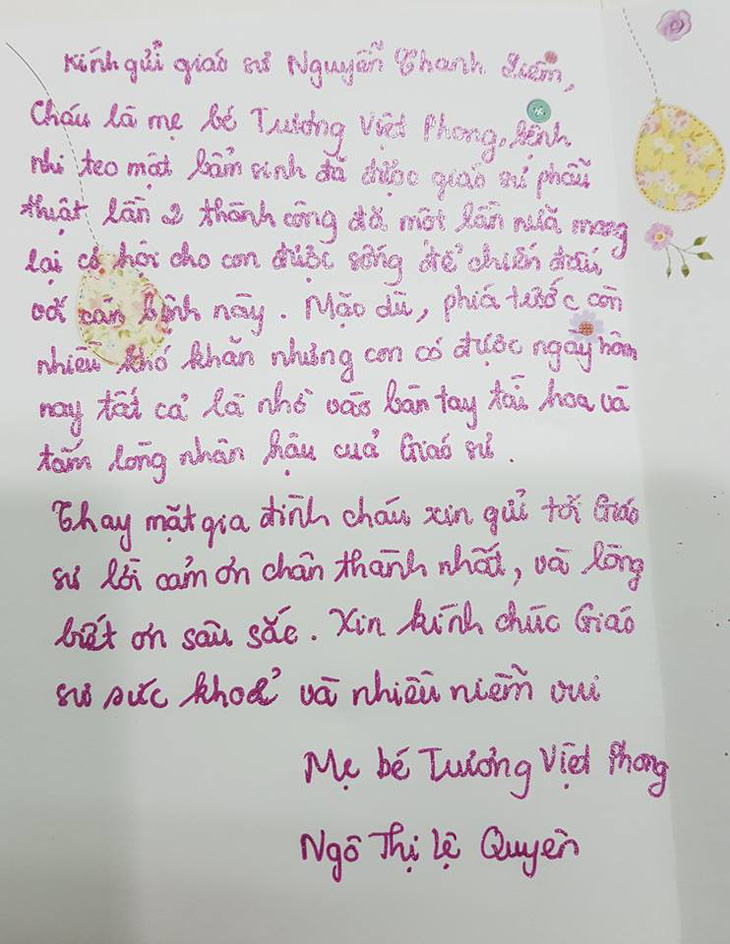 Kính gửi giáo sư Nguyễn Thanh Liêm,
Cháu là mẹ bé Tương Việt Phong, bệnh
nhi teo mật bẩm sinh đã được giáo sư phẫu
thuật lần 2 thành công đã một lần nữa mang
lại cơ hội cho con được sống để chiến đấu
với căn bệnh này. Mặc dù, phía trước còn
nhiều khó khăn nhưng con có được ngày hôm
nay tất cả là nhờ vào bàn tay tài hoa và
tấm lòng nhân hậu của Giáo sư.
Thay mặt gia đình cháu xin gửi tới Giáo
sư lời cảm ơn chân thành nhất, và lòng
biết ơn sâu sắc. Xin kính chúc Giáo
sư sức khoẻ và nhiều niềm vui
Mẹ bé Tương Việt Phong
Ngô Thị Lệ Quyên